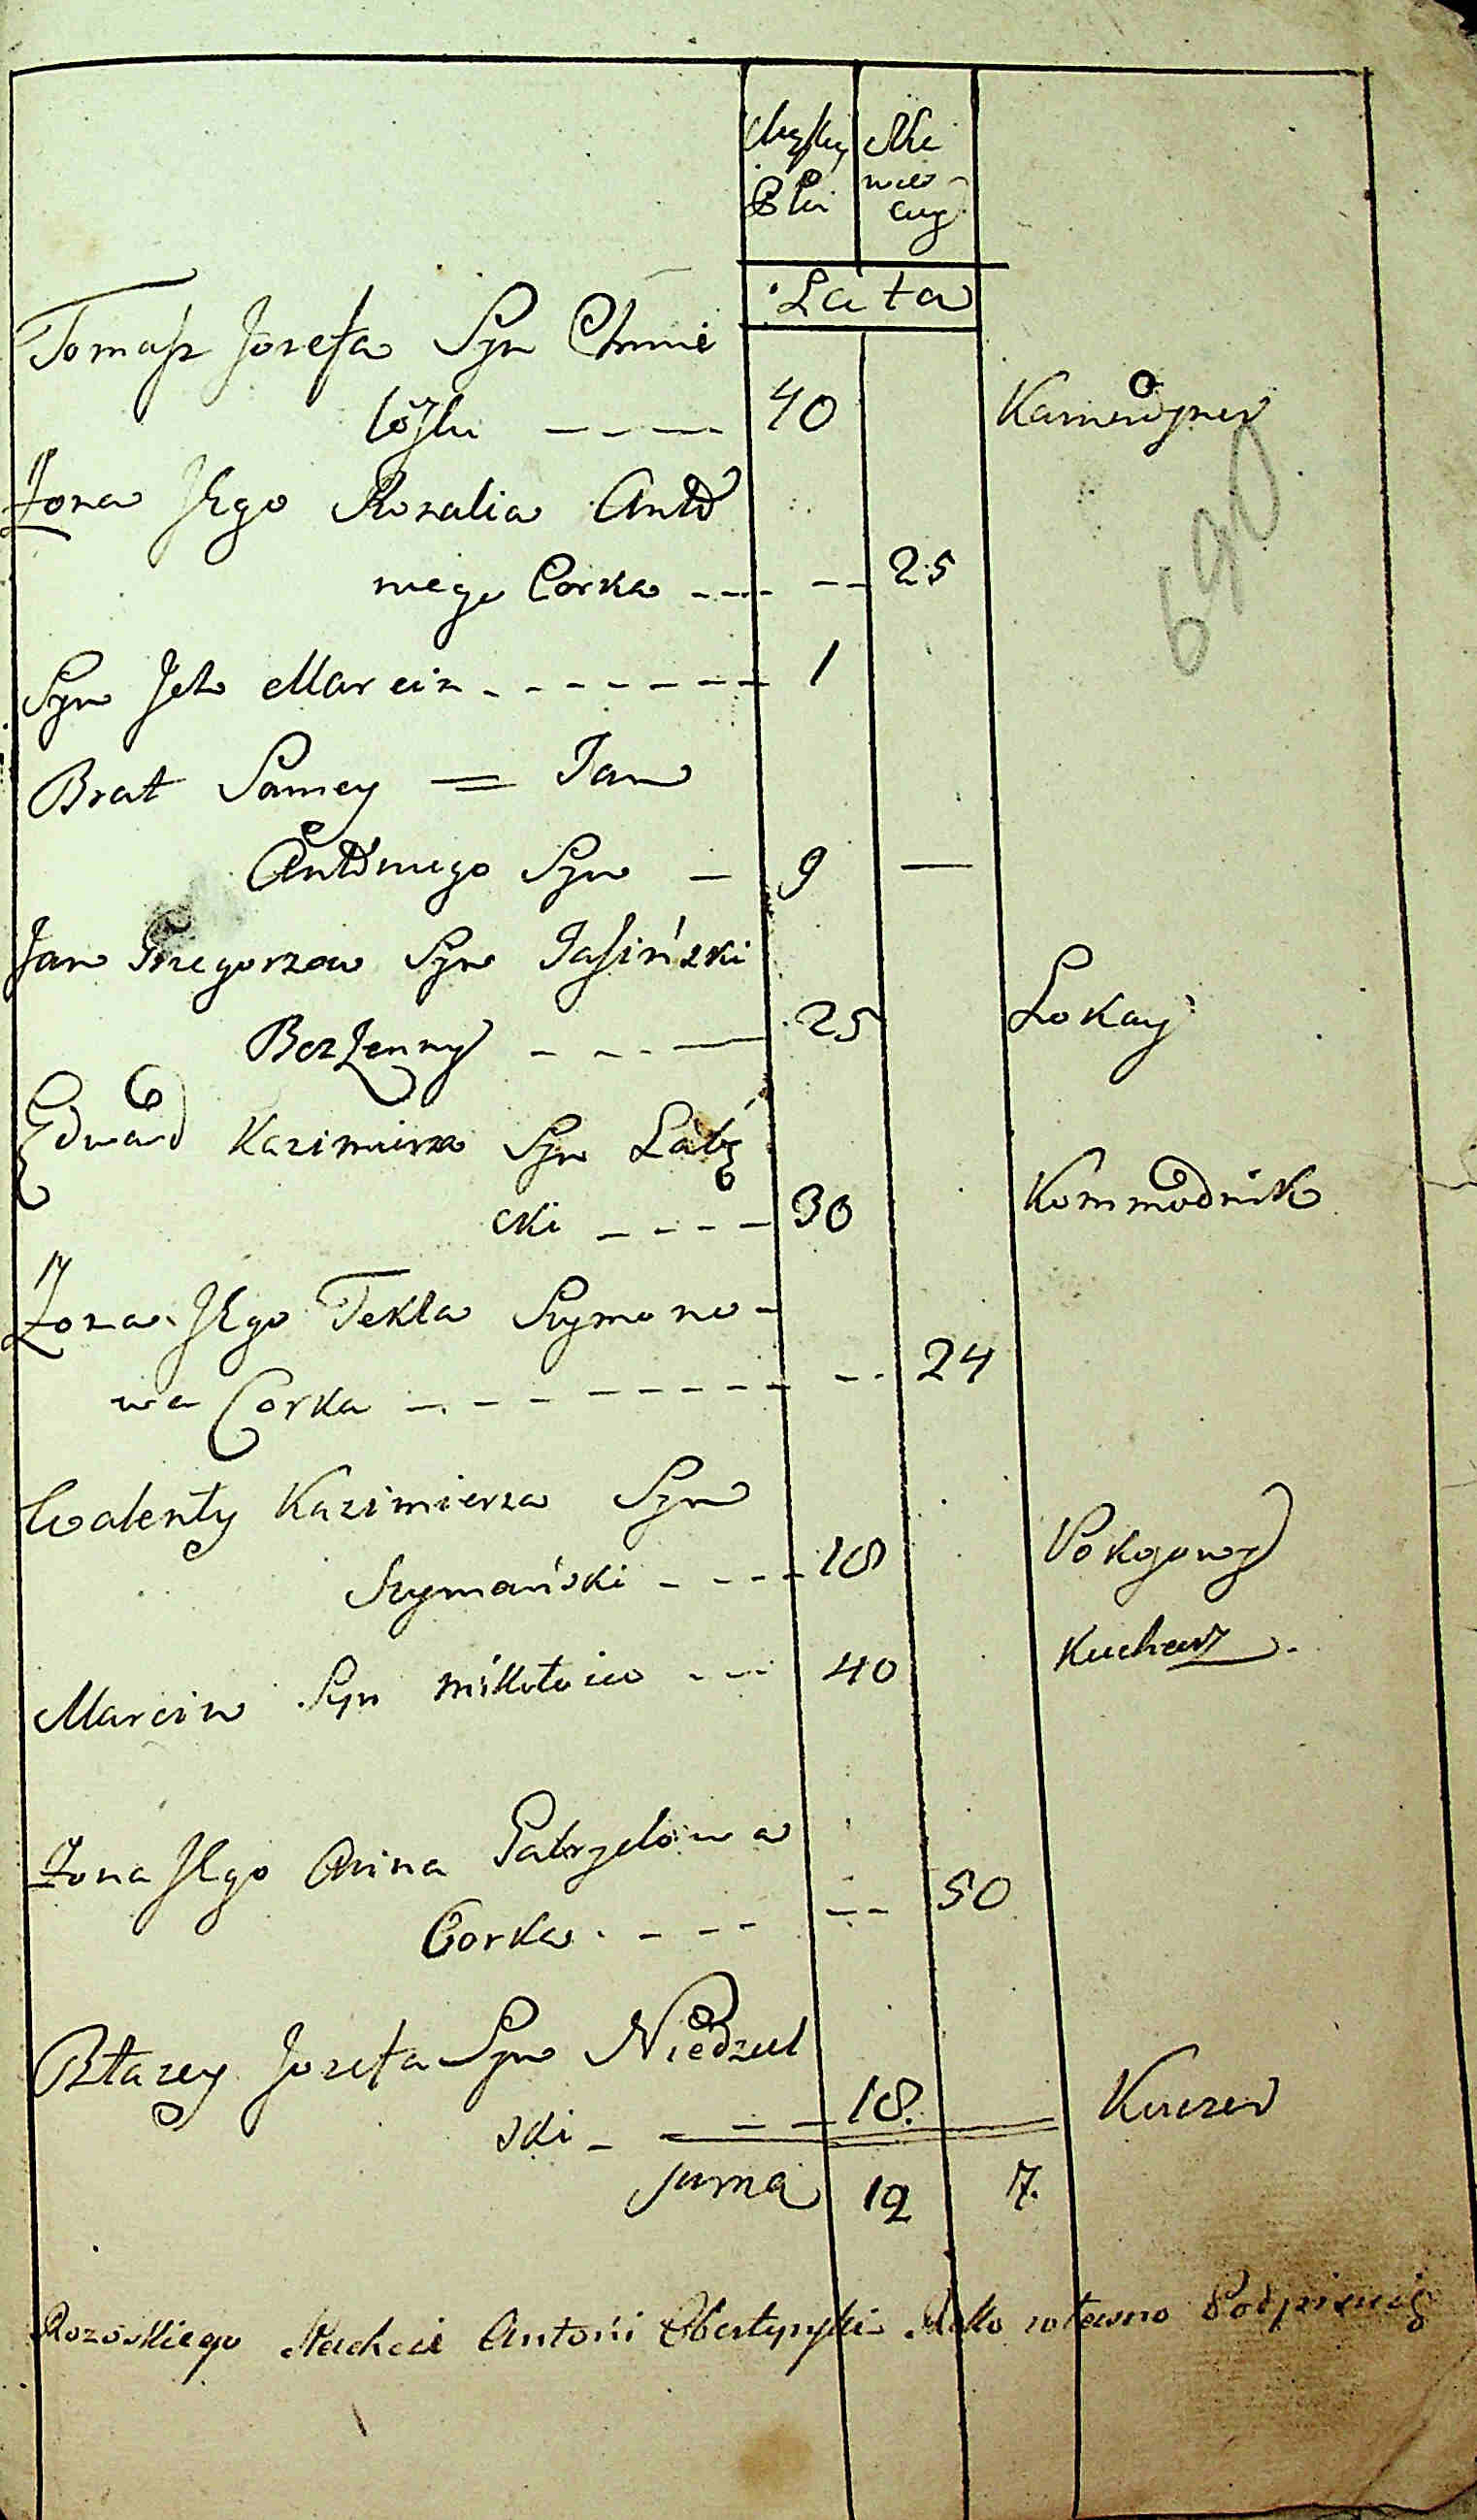 Męsky Nie
Płci wie-
ścig
Lata
Tomasz Jozefa Syn Chmie
losky ---- 40 Kamerdyner
Żona Jego Rozalia Anto
niego Corka ---- -- 25
Syn Jeh Marcin ------- 1
Brat Samey = Jan
Antoniego Syn - 9 -
Jan Grzegorzow Syn Jasiński
Bezżenny ---- 25 Lokay
Edward Kazimierza Syn
cki ---- 30 Kommodnik
Żona Jego Tekla Szymono-
wa Corka --------- -- 24
Walenty Kazimierza Syn
Szymański ---- 18 Pokojowy
Marcin Syn Mikołaiw --- 40 Kucharz
Żona Jego Anna Gabryelowa
Corka ---- -- 50
Błazey Jozefa Syn Niedziel
ski - --- 18. Kuczer
suma 12 7.
Antoni Obertyński Jako
690